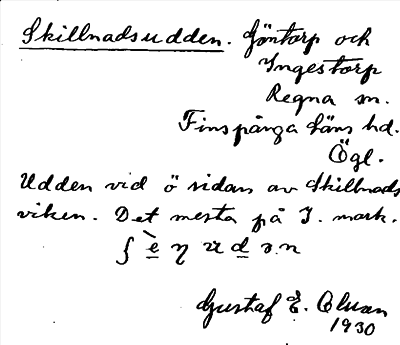 Skillnadsudden. Göntorp och
Ingestorp
Regna sn.
Finspånga läns hd.
Ögl.
Udden vid ö sidan av Skillnads
viken. Det mesta på I. mark.
Gustaf E.
1930